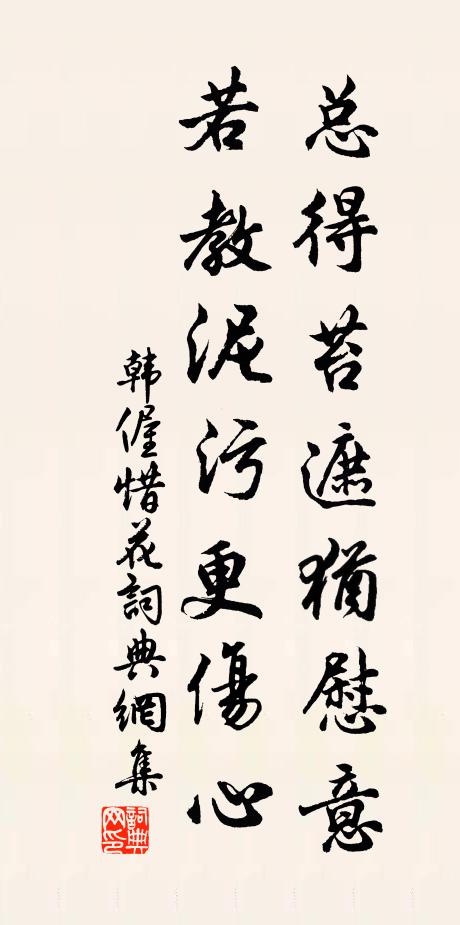 总得苔遮犹慰意
若教泥污更傷心
韩偓惜花詞典網集
詞典网印